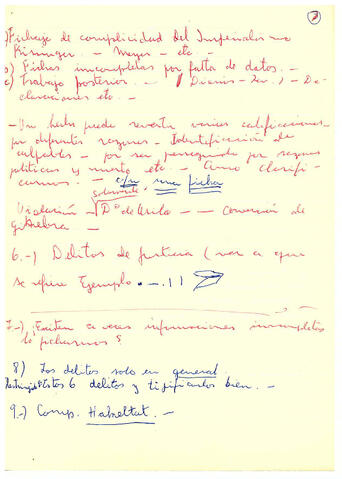 ) Fichaje de complicidad del Imperialismo
Kissinger. – Meyer – etc. –
b) Fichas incompletas por falta de datos. –
c) Trabajo posterior. – Diarios – Rev. ) – De-
claraciones etc. –
– Un hecho puede revestir varias calificaciones
por diferentes razones – Identificación de
culpables – por ser perseguido por razones
políticas y muerto etc. – Como clasifi-
camos. – con una ficha
Violación – D° de Asilo – – Convención de
Ginebra. –
6.–) Delitos de (ver a que
se refiere Ejemplo. – . ! )
7.–) ¿Existen a veces informaciones incompletas
lo fichamos?
8) Los delitos solo en general.
Estos 6 delitos y tipificarlos bien. –
9.–) Comp. –